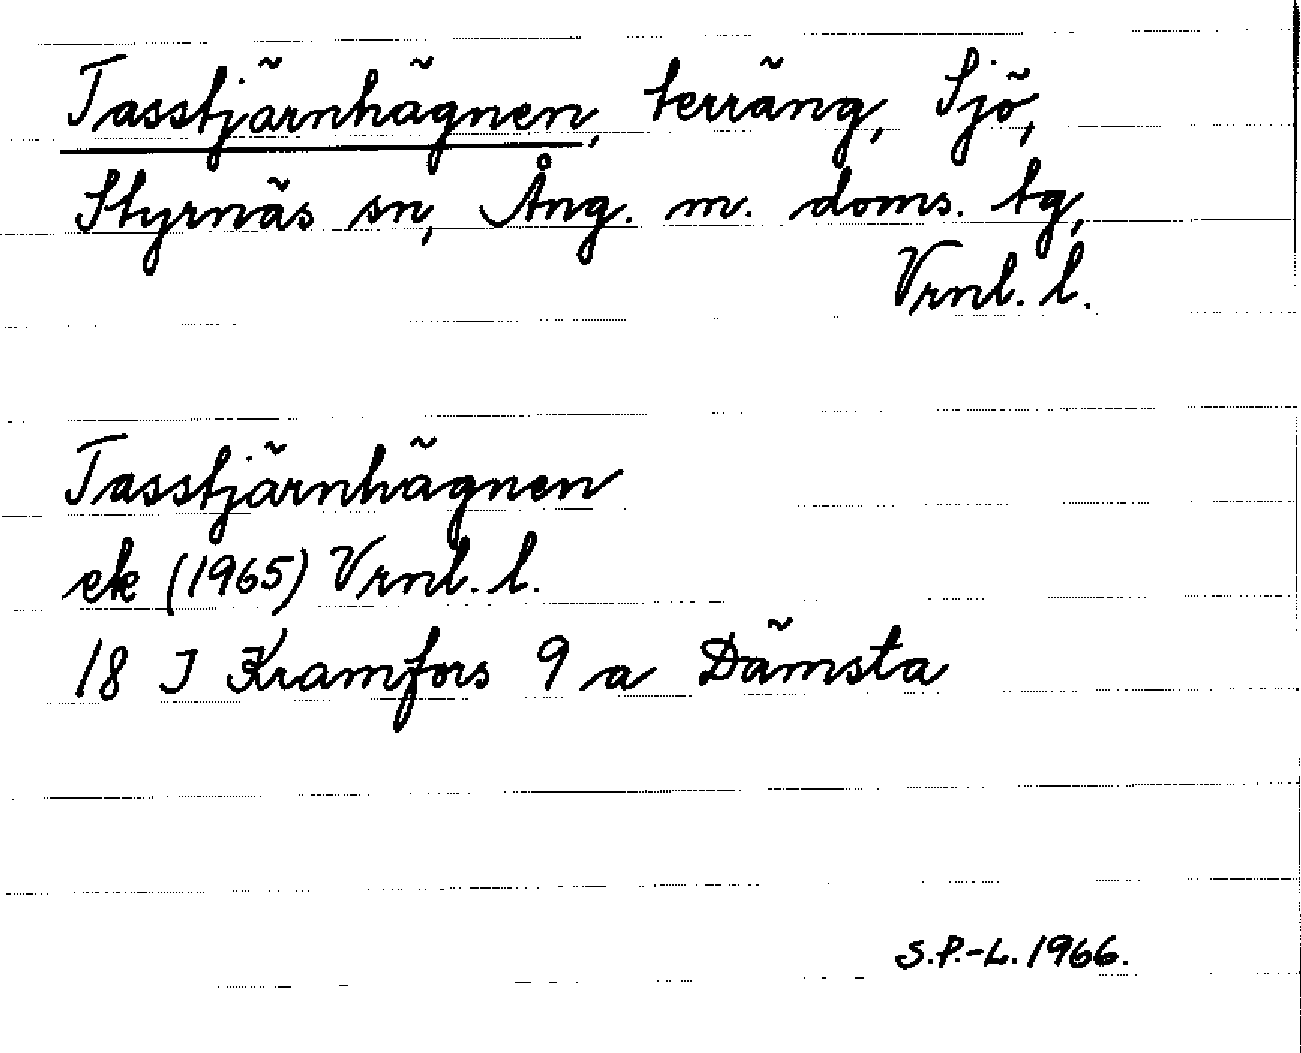 Tasstjärnhägnen, terräng, Sjö,
Styrnäs sn, Ång. m. doms. tg,
Vrnl. l.
Tasstjärnhägnen
ek (1965) Vrnl. l.
18 J Kramfors 9 a Dämsta
S.P.-L. 1966.